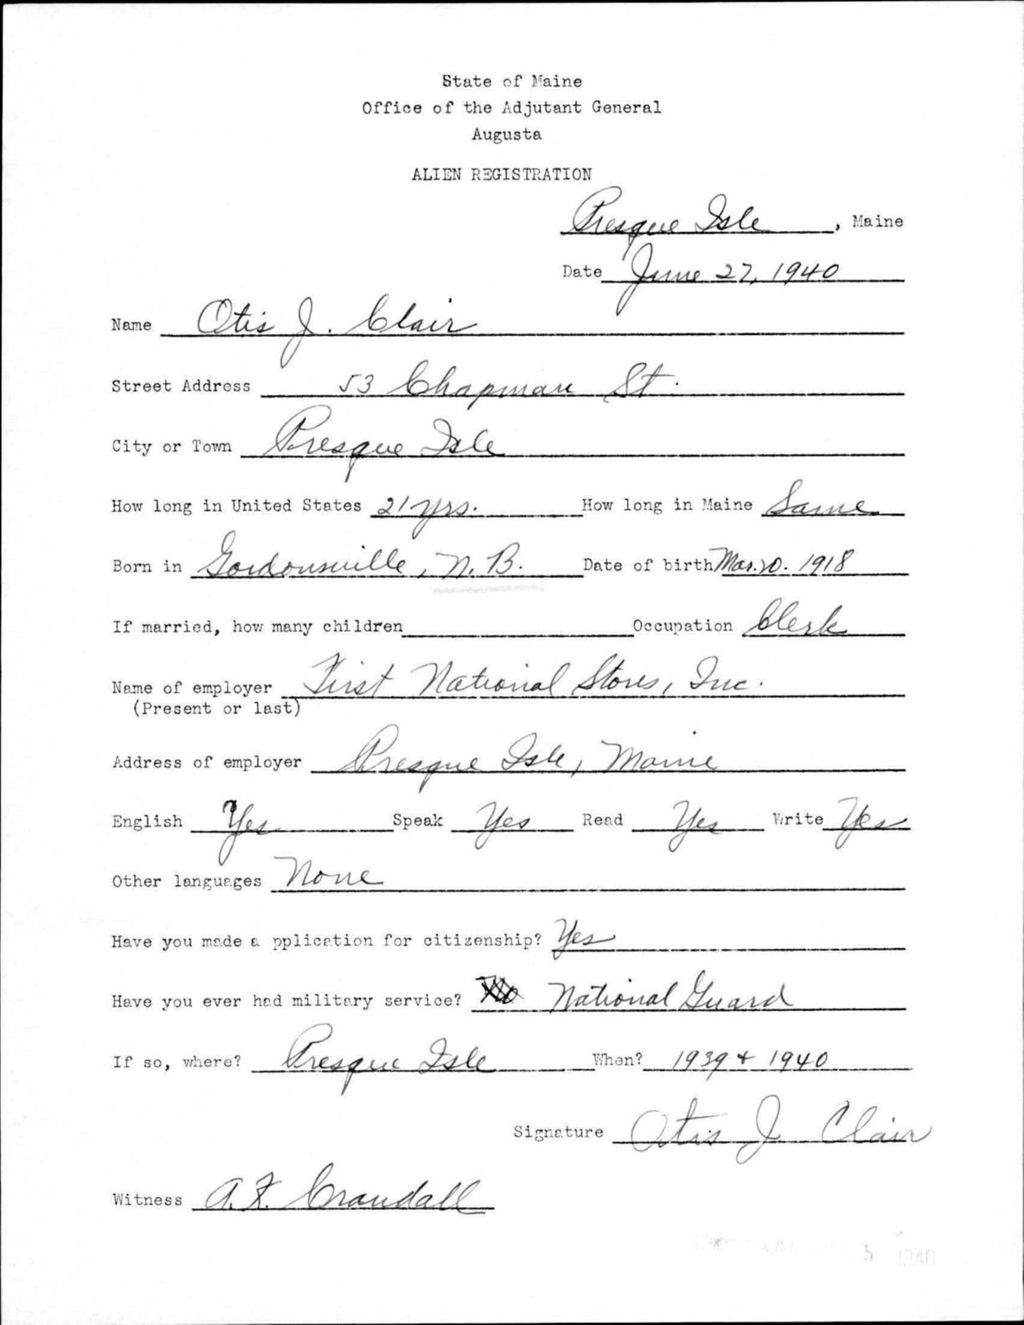 State of Maine
Office of the Adjutant General
Augusta
ALIEN REGISTRATION
Presque Isle, Maine
Date June 27, 1940
Name Otis J. Clair
Street Address 53 Chapman St.
City or Town Presque Isle
How long in United States 21 yrs. How long in Maine Same
Born in Gordonsville, N. B. Date of birth Mar. 20. 1918
If married, how many children Occupation Clerk
Name of employer First National Stores, Inc.
(Present or last)
Address of employer Presque Isle, Maine
English Yes Speak Yes Read Yes Write Yes
Other languages None
Have you made a pplication for citizenship? Yes
Have you ever had military service? National Guard
If so, where? Presque Isle When? 1939 + 1940
Signature Otis J. Clair
Witness A. F. Crandall
5 1940